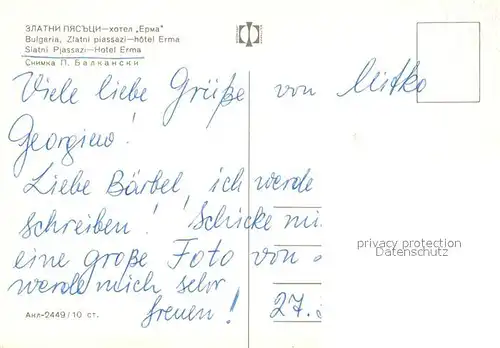 ЗЛАТНИ ПЯСЪЦИ—хотел „Ерма"
Bulgaria, Zlatni piassazi—hôtel Erma
Slatni Pjassazi—Hotel Erma
Снимка П. Балкански
Viele liebe Grüße von Mitko
Georgino!
Liebe Bärbel, ich werde
schreiben! Schicke mi
eine große Foto von
werde mich sehr
freuen!
27.
privacy protection
Datenschutz
Анл-2449/10 ст.